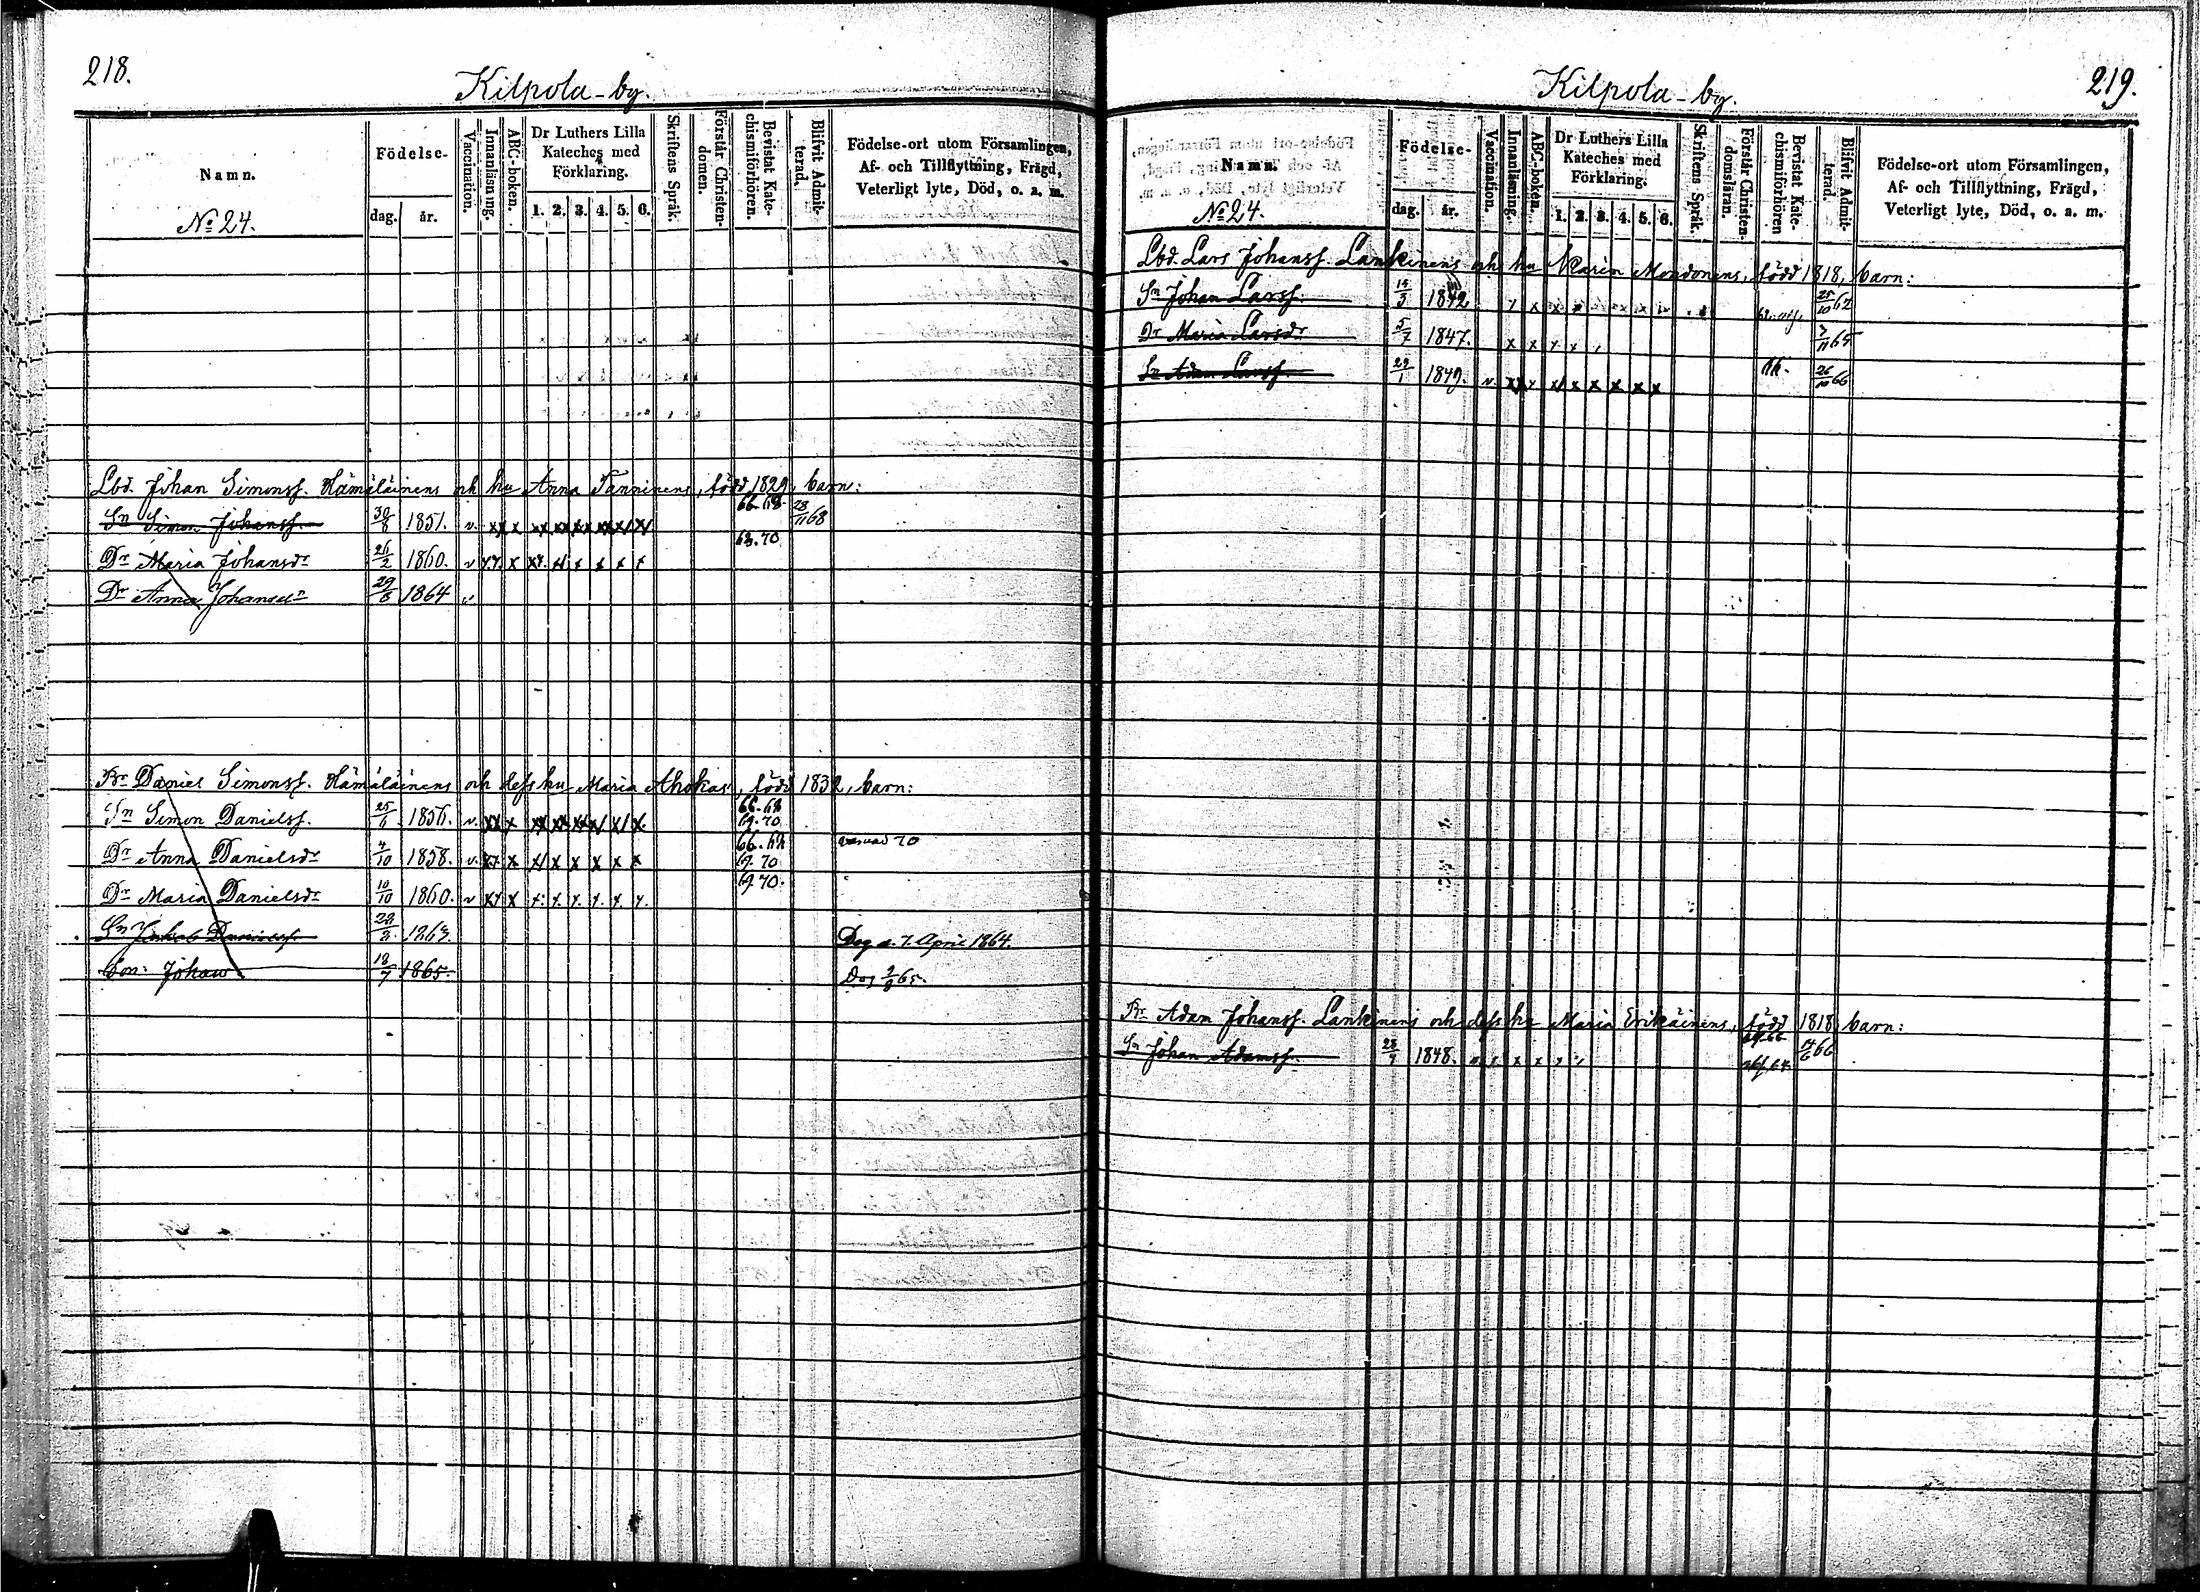 218.
Kilpola-by.
Namn.
Födelse-
dag. år.
Vaccination.
Innanläsning.
ABC-boken.
Dr Luthers Lilla Kateches med Förklaring.
1. 2. 3. 4. 5. 6.
Skriftens Språk.
Förstår Christen-
domen.
Bevistat Kate-
chismiförhören.
Blifvit Admit-
terad.
Födelse-ort utom Församlingen,
Af- och Tillflyttning, Frägd,
Veterligt lyte, Död, o. a. m.
No 24.
Lbd. Johan Simonss. Hämäläinens och hu Anna Tanninens, född 1829, barn:
Sn Simon Johanss. 30/8 1851. v. xx x xx xx xx xx x/ x/ 66. 68. 28/11 68
Dr Maria Johansdr 26/2 1860. v x.x. x xx. x/ x x x x 68. 70
Dr Anna Johansdr 29/8 1864 v
Br Daniel Simonss. Hämäläinens och dess hu Maria Ahokas, född 1832, barn:
Sn Simon Danielss. 25/6 1856. v. xx x xx xx xx x/ x/ x. 66. 68 69. 70
Dr Anna Danielsdr 4/10 1858. v. xx x x/ x x x x x 66. 68 69. 70
Dr Maria Danielsdr 10/10 1860. v xx x x. x. x. x. x. x. 69. 70.
Sn Jakob Danielss. 1863. Dog d. 7. April 1864.
Son: Johan 18/7 1865 Dog 2/8 65.
219.
Kilpola-by.
Namn.
Födelse-
dag. år.
Vaccination.
Innanläsning.
ABC-boken.
Dr Luthers Lilla
Kateches med
Förklaring.
1. 2. 3. 4. 5. 6.
Skriftens Språk.
Förstår Christen-
domsläran.
Bevistat Kate-
chismiförhören
Blifvit Admit-
terad.
Födelse-ort utom Församlingen,
Af- och Tillflyttning, Frägd,
Veterligt lyte, Död, o. a. m.
No 24.
Lbd. Lars Johanss. Lankinens och hu Karin Mondonens, född 1818, barn:
Sn Johan Larss. 1842 25/10 62
Dr Maria Larsdr 5/7 1847. x x x x 7/11 64
Sn Adam Larss. 29/1 1849. v. xx x x/ x x x x x 26/10 66
Br Adam Johanss. Lankinens och dess hu Maria Erikäinens, född 1818, barn:
Sn Johan Adamss. 1848. 66